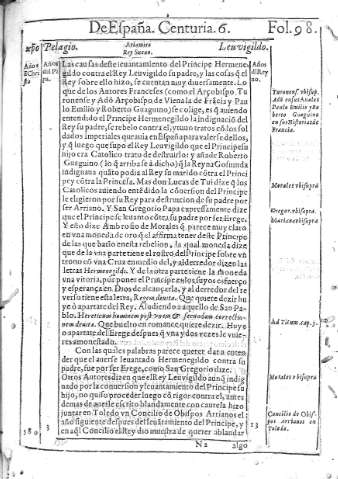 De España. Centuria. 6. Fol. 98.
Pelagio. Leuvigildo.
Años
Las causas deste leuantamiento del Principe Hermene
gildo contra el Rey Leuvigildo su padre, y las cosas q̃ el
Rey sobre ello hizo, se cuentan muy diuersamente. Lo
que de los Autores Franceses (como el Arçobispo Tu
ronense y Adò Arçobispo de Viena la de Frãcia y Pau
lo Emilio y Roberto Guaguino) se colige, es q̃ auiendo
entendido el Principe Hermenegildo la indignaciõ del
Rey su padre, se rebelo contra el, y tuuo tratos cõ los sol
dados imperiales que auia en España para valerse dellos,
y q̃ luego que supo el Rey Leuvigildo que el Principe su
hijo era Catolico trato de destruirlo: y añade Roberto
Guaguino (lo q̃ arriba se à dicho) q̃ la Reyna Gosunda
indignada quãto podia al Rey su marido cõtra el Princi
pe y cõtra la Princesa. Mas don Lucas de Tui dize q̃ los
Catolicos auiendo entẽdido la cõuersion del Principe
le eligieron por su Rey para destruicion de su padre por
ser Arriano. Y San Gregorio Papa expressamente dize
que el Principe se leuanto cõtra su padre por ser Erege.
Y eño dize Ambrosio de Morales q̃ parece muy claro
en vna moneda de oro q̃ el afirma tener deste Principe
de las que batio en esta rebelion, la qual moneda dize
que de la vna parte tiene el rostro del Principe sobre vn
trono cõ vna Cruz encima del, y al derredor dizen las
letras Hermenegildo. Y de la otra parte tiene la moneda
vna vitoria, que ponen el Principe en los suyos esfuerço
y esperança en Dios de alcançarla, y al derredor del re
verso tiene esta letra, Regem deuita. Que quiere dezir hu
ye o apartate del Rey. Aludiendo a aquello de San Pa
blo. Hereticum hominem post vnam & secundam correctio-
nem deuita. Que buelto en romance, quiere dezir. Huye
o apartate del Erege despues q̃ vna y dos vezes le vuie-
res amonestado.
Con las quales palabras parece querer dar a enten
der que el auerse leuantado Hermenegildo contra su
padre, fue por ser Erege, como San Gregorio dize.
Otros Autores dizen que el Rey Leuvigildo aunq̃ indig
nado por la conuersion y leuantamiento del Principe su
hijo, no quiso proceder luego cõ rigor contra el, antes
demas de auerle escrito blandamente con cautela hizo
juntar en Toledo vn Concilio de Obispos Arrianos el
año siguiente despues del leuantamiento del Principe, y
en aq̃l Concilio el Rey dio muestra de querer ablandar
N 2 algo
Morales vbi supra
Gregor. vbi supra.
Morales vbi supra
Ad Titum. cap. 3.
Morales vbi supra
Concilio de Obis
pos Arrianos en
Toledo.
3
13